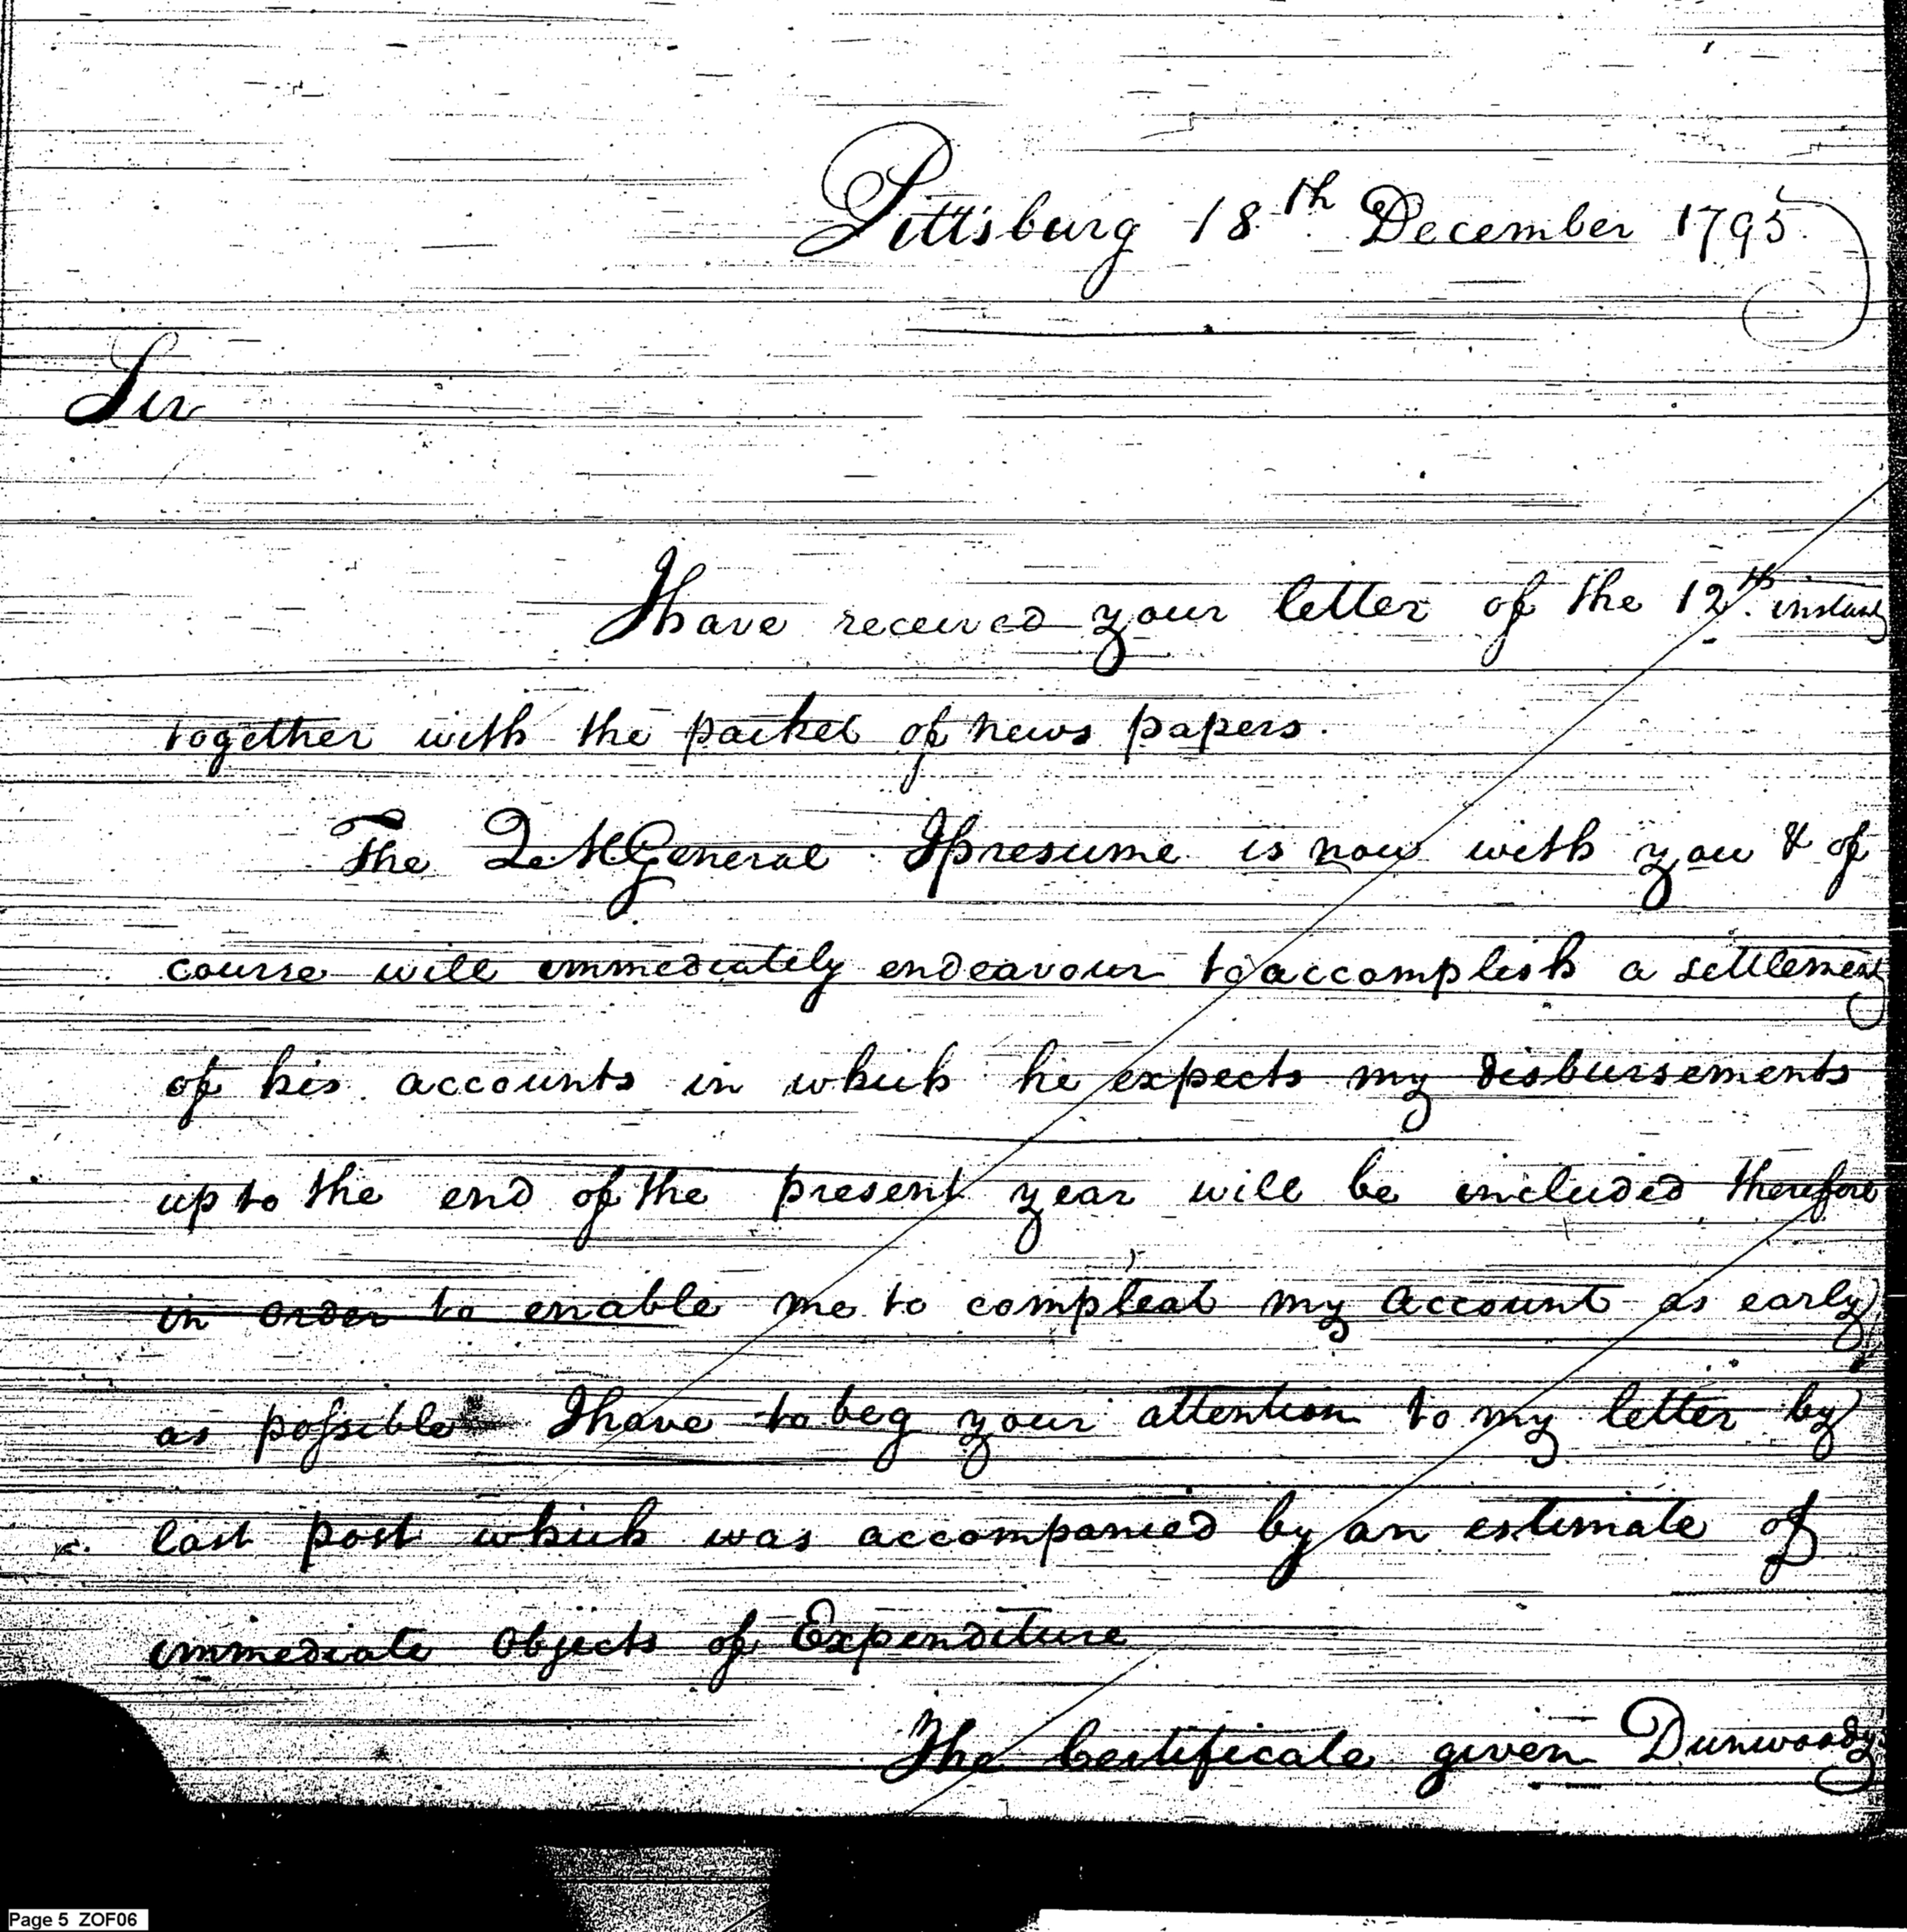 Pittsburg 18th December 1795.
Sir
I have received your letter of the 12th instant
together with the packet of news papers.
The Q. M General I presume is now with you & of
course will immediately endeavour to accomplish a settlement
of his accounts in which he expects my disbursements
up to the end of the present year will be included therefore
in order to enable me to compleat my account as early
as possible I have to beg your attention to my letter by
last post which was accompanied by an estimate of
immediate Objects of Expenditure
The Certificate given Dunwoody
Page 5 ZOF06